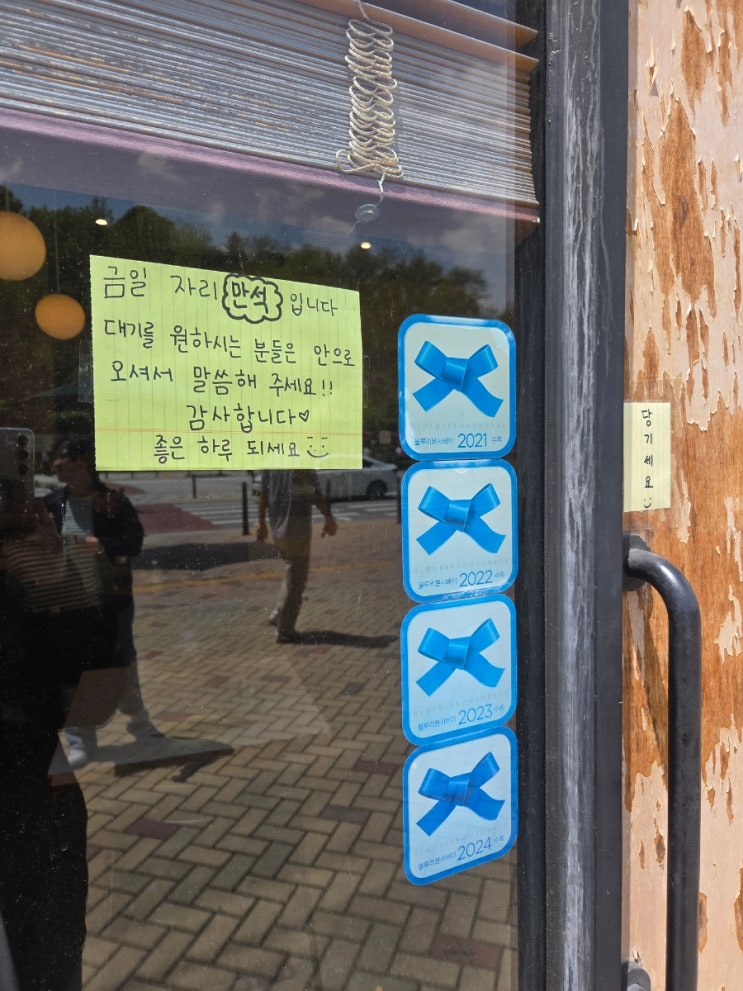 금일 자리 만석 입니다
대기를 원하시는 분들은 안으로
오셔서 말씀해 주세요!!
감사합니다♡
좋은 하루 되세요
BLUE RIBBON SURVEY
블루리본서베이 2021 수록
BLUE RIBBON SURVEY
블루리본서베이 2022 수록
BLUE RIBBON SURVEY
블루리본서베이 2023 수록
블루리본서베이 2024 수록
당기세요